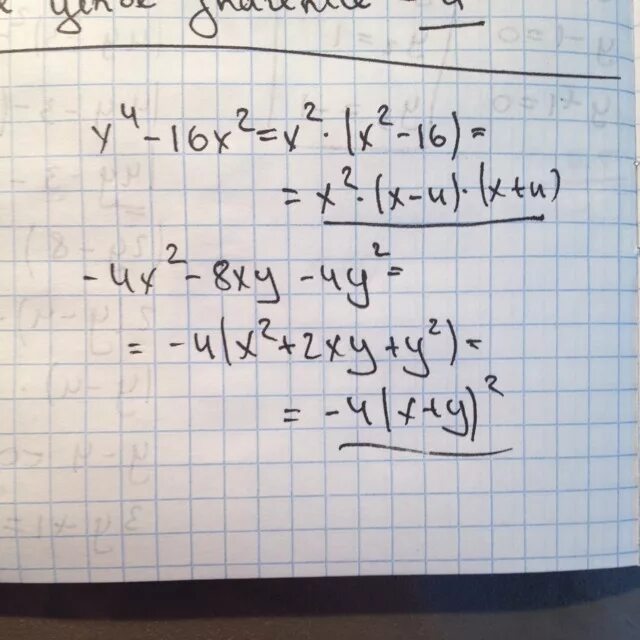 целое значение - 4
x⁴ - 16x² = x² · (x² - 16) =
= x² · (x - 4) · (x + 4)
- 4x² - 8xy - 4y² =
= - 4(x² + 2xy + y²) =
= - 4(x + y)²